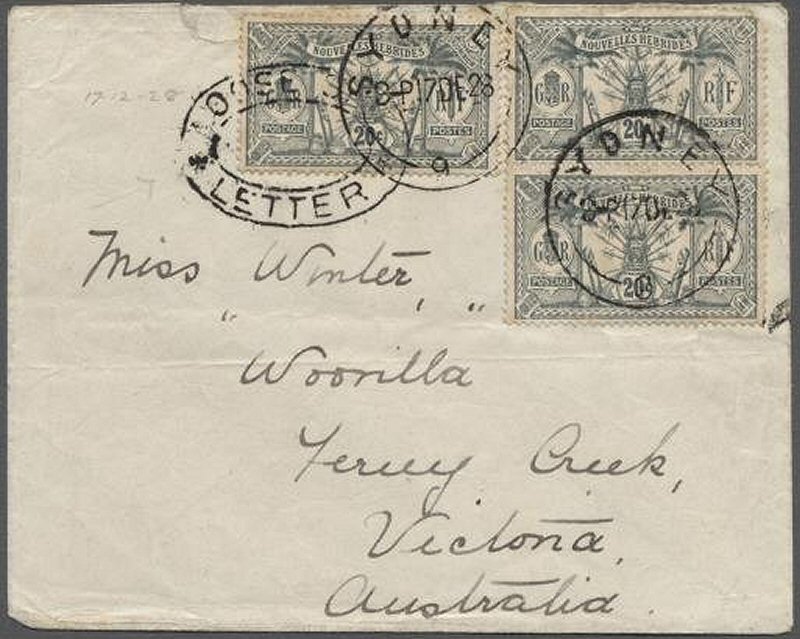 17-12-28
LOOSE
LETTER
SYDNEY
8-P 17 DE 28
9
NOUVELLES HEBRIDES
R F
POSTAGE
20c
NOUVELLES HEBRIDES
G R
R F
POSTAGE
20c
POSTES
SYDNEY
8-P 17 DE
HEBRIDES
G R
R F
POSTAGE
20c
POSTES
Miss Winter,
" "
"Woorilla
Ferny Creek,
Victoria,
Australia.